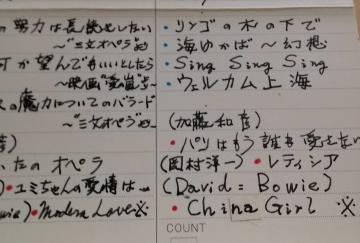 の努力は長続きしない
〜"三文オペラ"より
何が望んでもいいとしたら
〜映画"愛の嵐"より
の魔力についてのバラード
〜"三文オペラ"より
たのオペラ
・ユミちゃんの愛情は…
wie)・Modern Love※
・リンゴの木の下で
・海ゆかば〜幻想
・Sing Sing Sing
・ウェルカム上海
(加藤和彦)
・パリはもう誰も愛さない
(岡村洋一)・レティシア
(David=Bowie)
・China Girl ※
COUNT